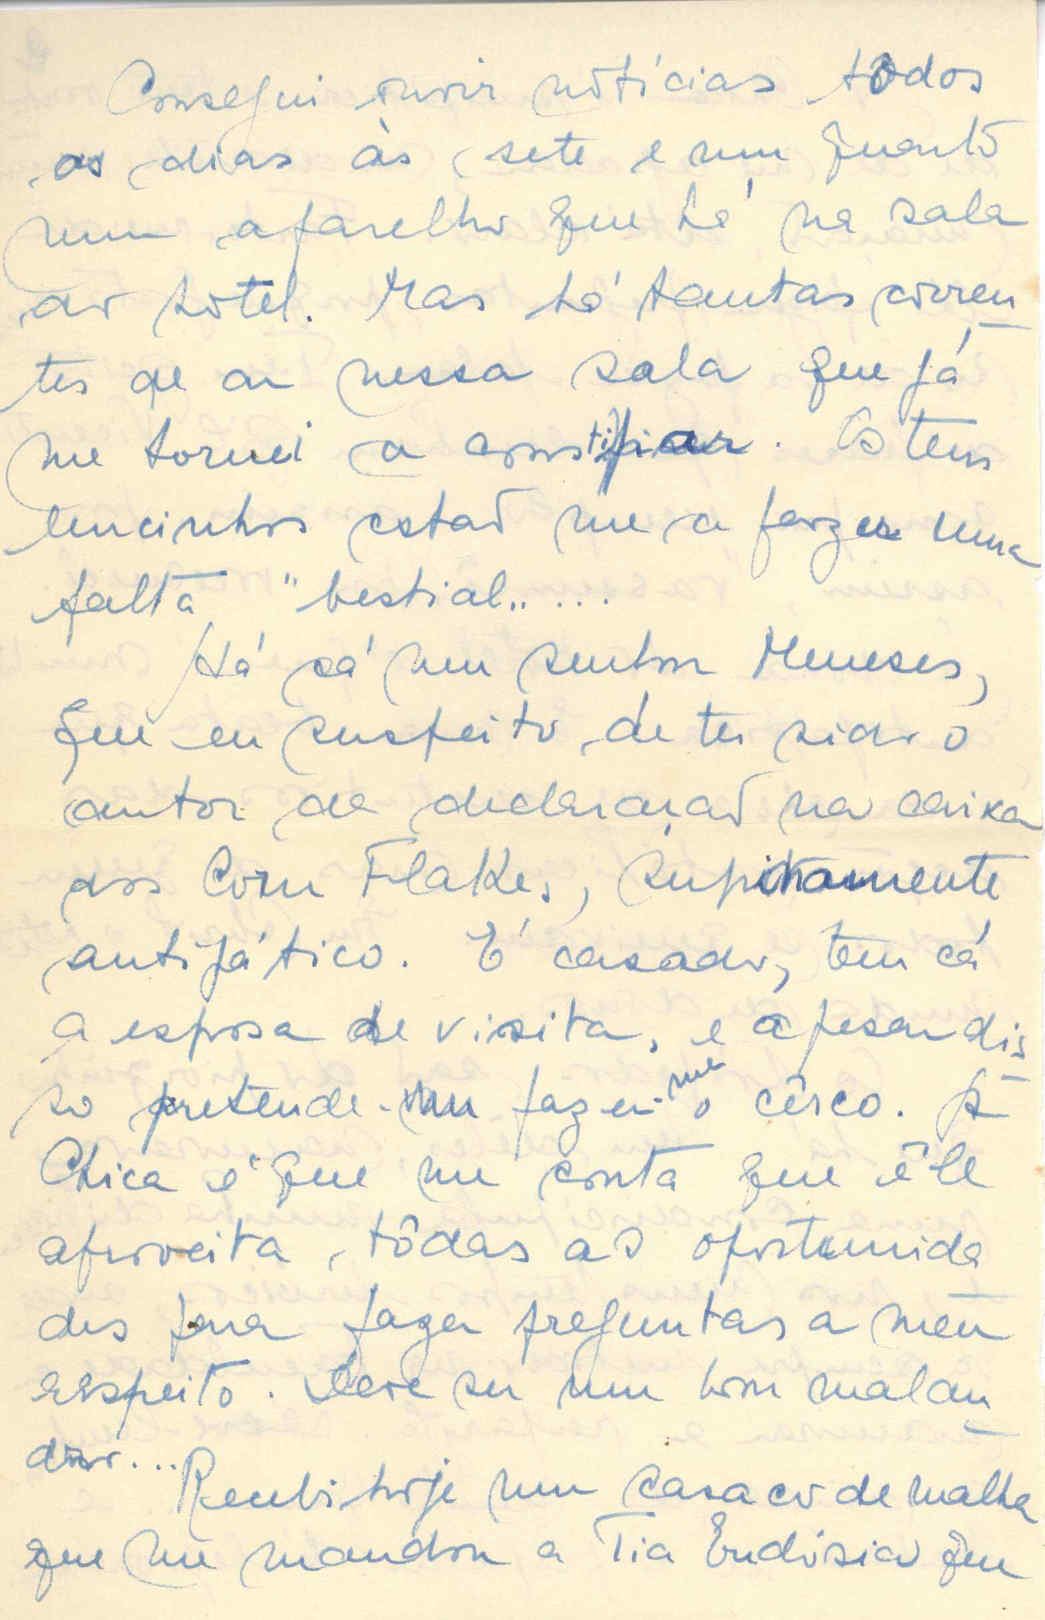 Consegui ouvir notícias todos
os dias às sete e um quarto
num aparelho que há na sala
do hotel. Mas há tantas corren
tes de ar nessa sala que já
me tornei a constipar. Os teus
lencinhos estão me a fazer uma
falta "bestial" ...
Há cá um senhor Meneses,
que eu suspeito de ter sido o
autor da declaração na caixa
dos Corn Flakes, supinamente
antipático. É casado, tem cá
a esposa de visita, e apesar dis
so pretende fazer-me o cêrco. A
Chica é que me conta que êle
aproveita tôdas as oportunida
des para fazer preguntas a meu
respeito. Deve ser um bom malan
dro...
Recebi hoje um casaco de malha
que me mandou a Tia Eudósia que